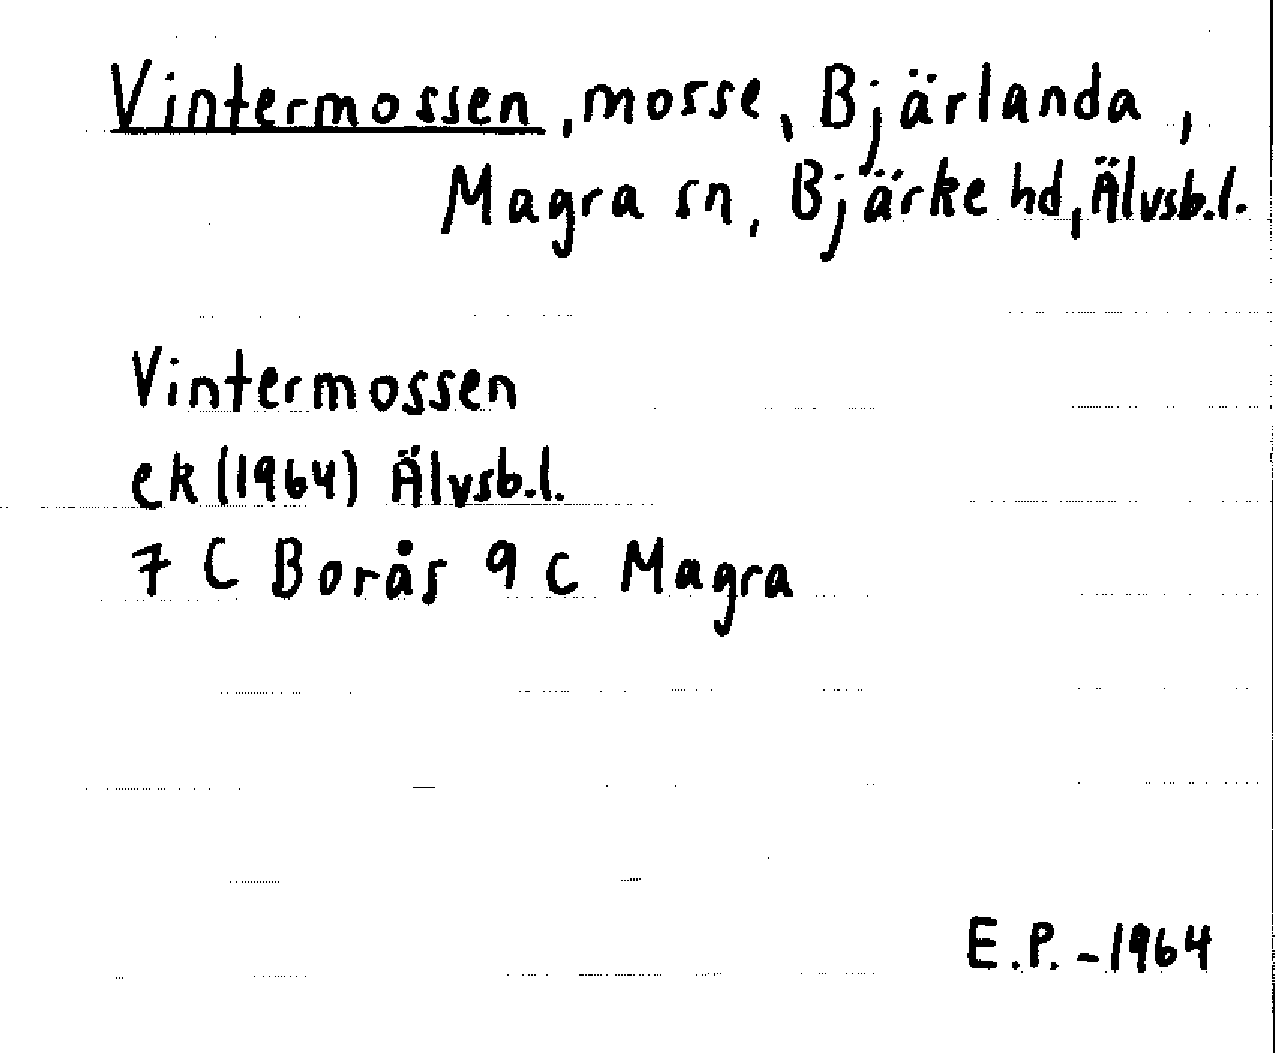 Vintermossen, mosse, Bjärlanda,
Magra sn, Bjärke hd, Älvsb.l.
Vintermossen
ek (1964) Älvsb.l.
7 C Borås 9 c Magra
E.P. - 1964